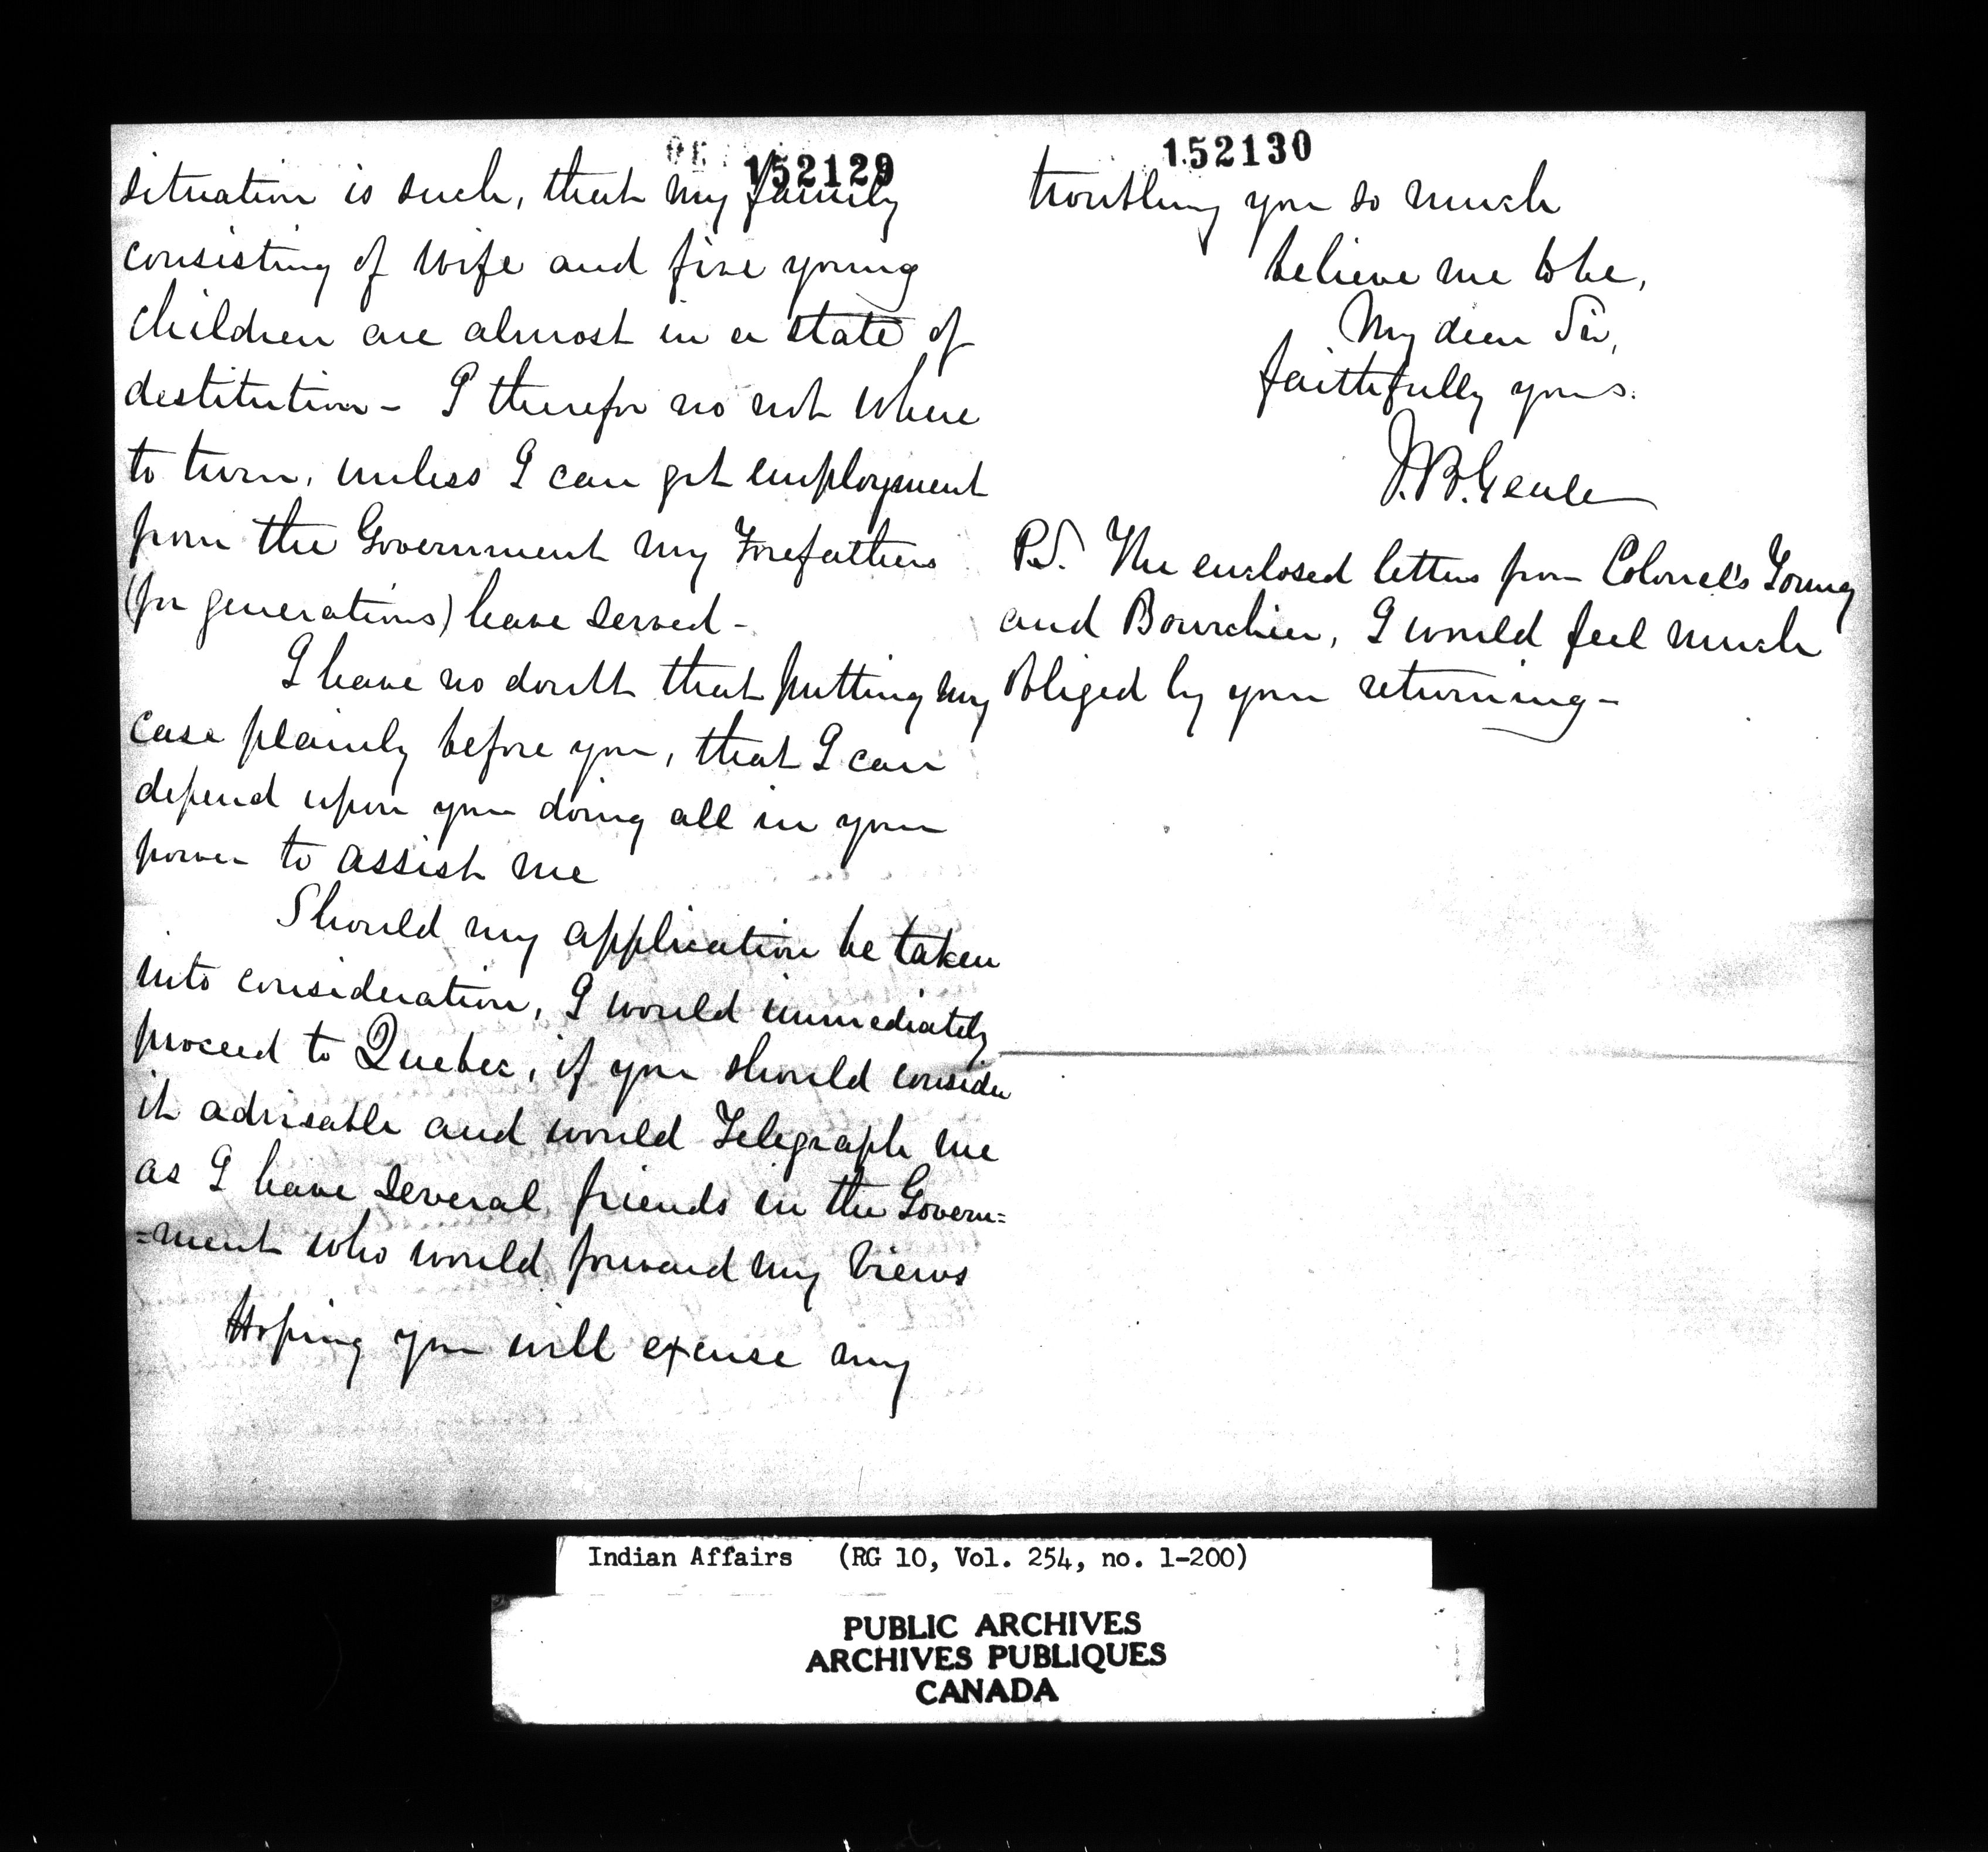 152129
situation is such, that my family
consisting of wife and five young
children are almost in a state of
destitution - I therefor no not where
to turn, unless I can get employment
from the Government my Forefathers
(for generations) have served -
I have no doubt that putting my
case plainly before you, that I can
depend upon your doing all in your
power to assist me
Should my application be taken
into consideration, I would immediately
proceed to Quebec, if you should consider
it advisable and would Telegraph me
as I have several friends in the Govern=
=ment who would forward my views
Hoping you will excuse my
152130
troubling you so much
believe me to be,
My dear Sir,
faithfully yours.
J.B.
P.S. The enclosed letters from Colonel's Young
and Bourchier, I would feel much
obliged by your returning -
Indian Affairs (RG 10, Vol. 254, no. 1-200)
PUBLIC ARCHIVES
ARCHIVES PUBLIQUES
CANADA